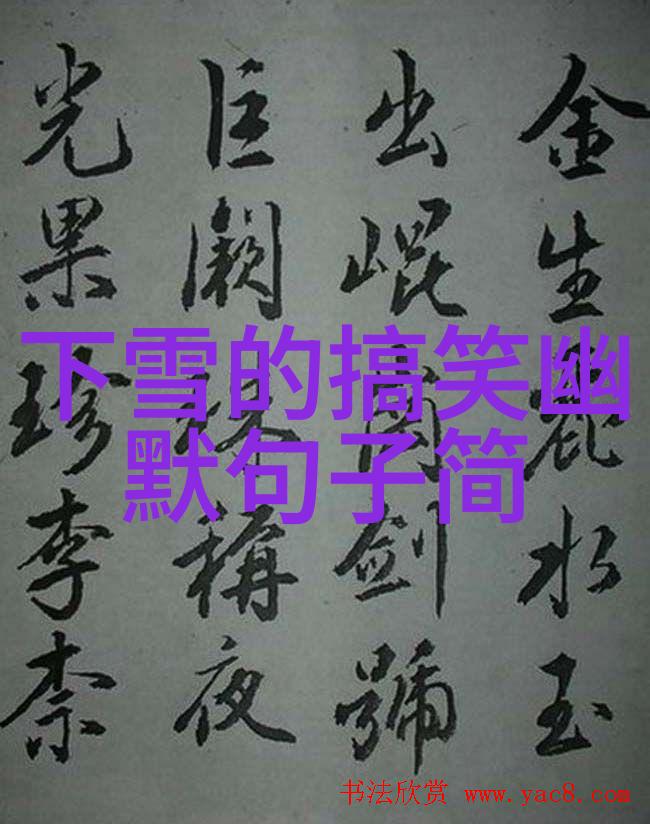 金生麗水玉
出崐岡劍號
巨闕珠稱夜
光果珍李柰
下雪的搞笑幽
默句子简
书法欣赏 www.yac8.com